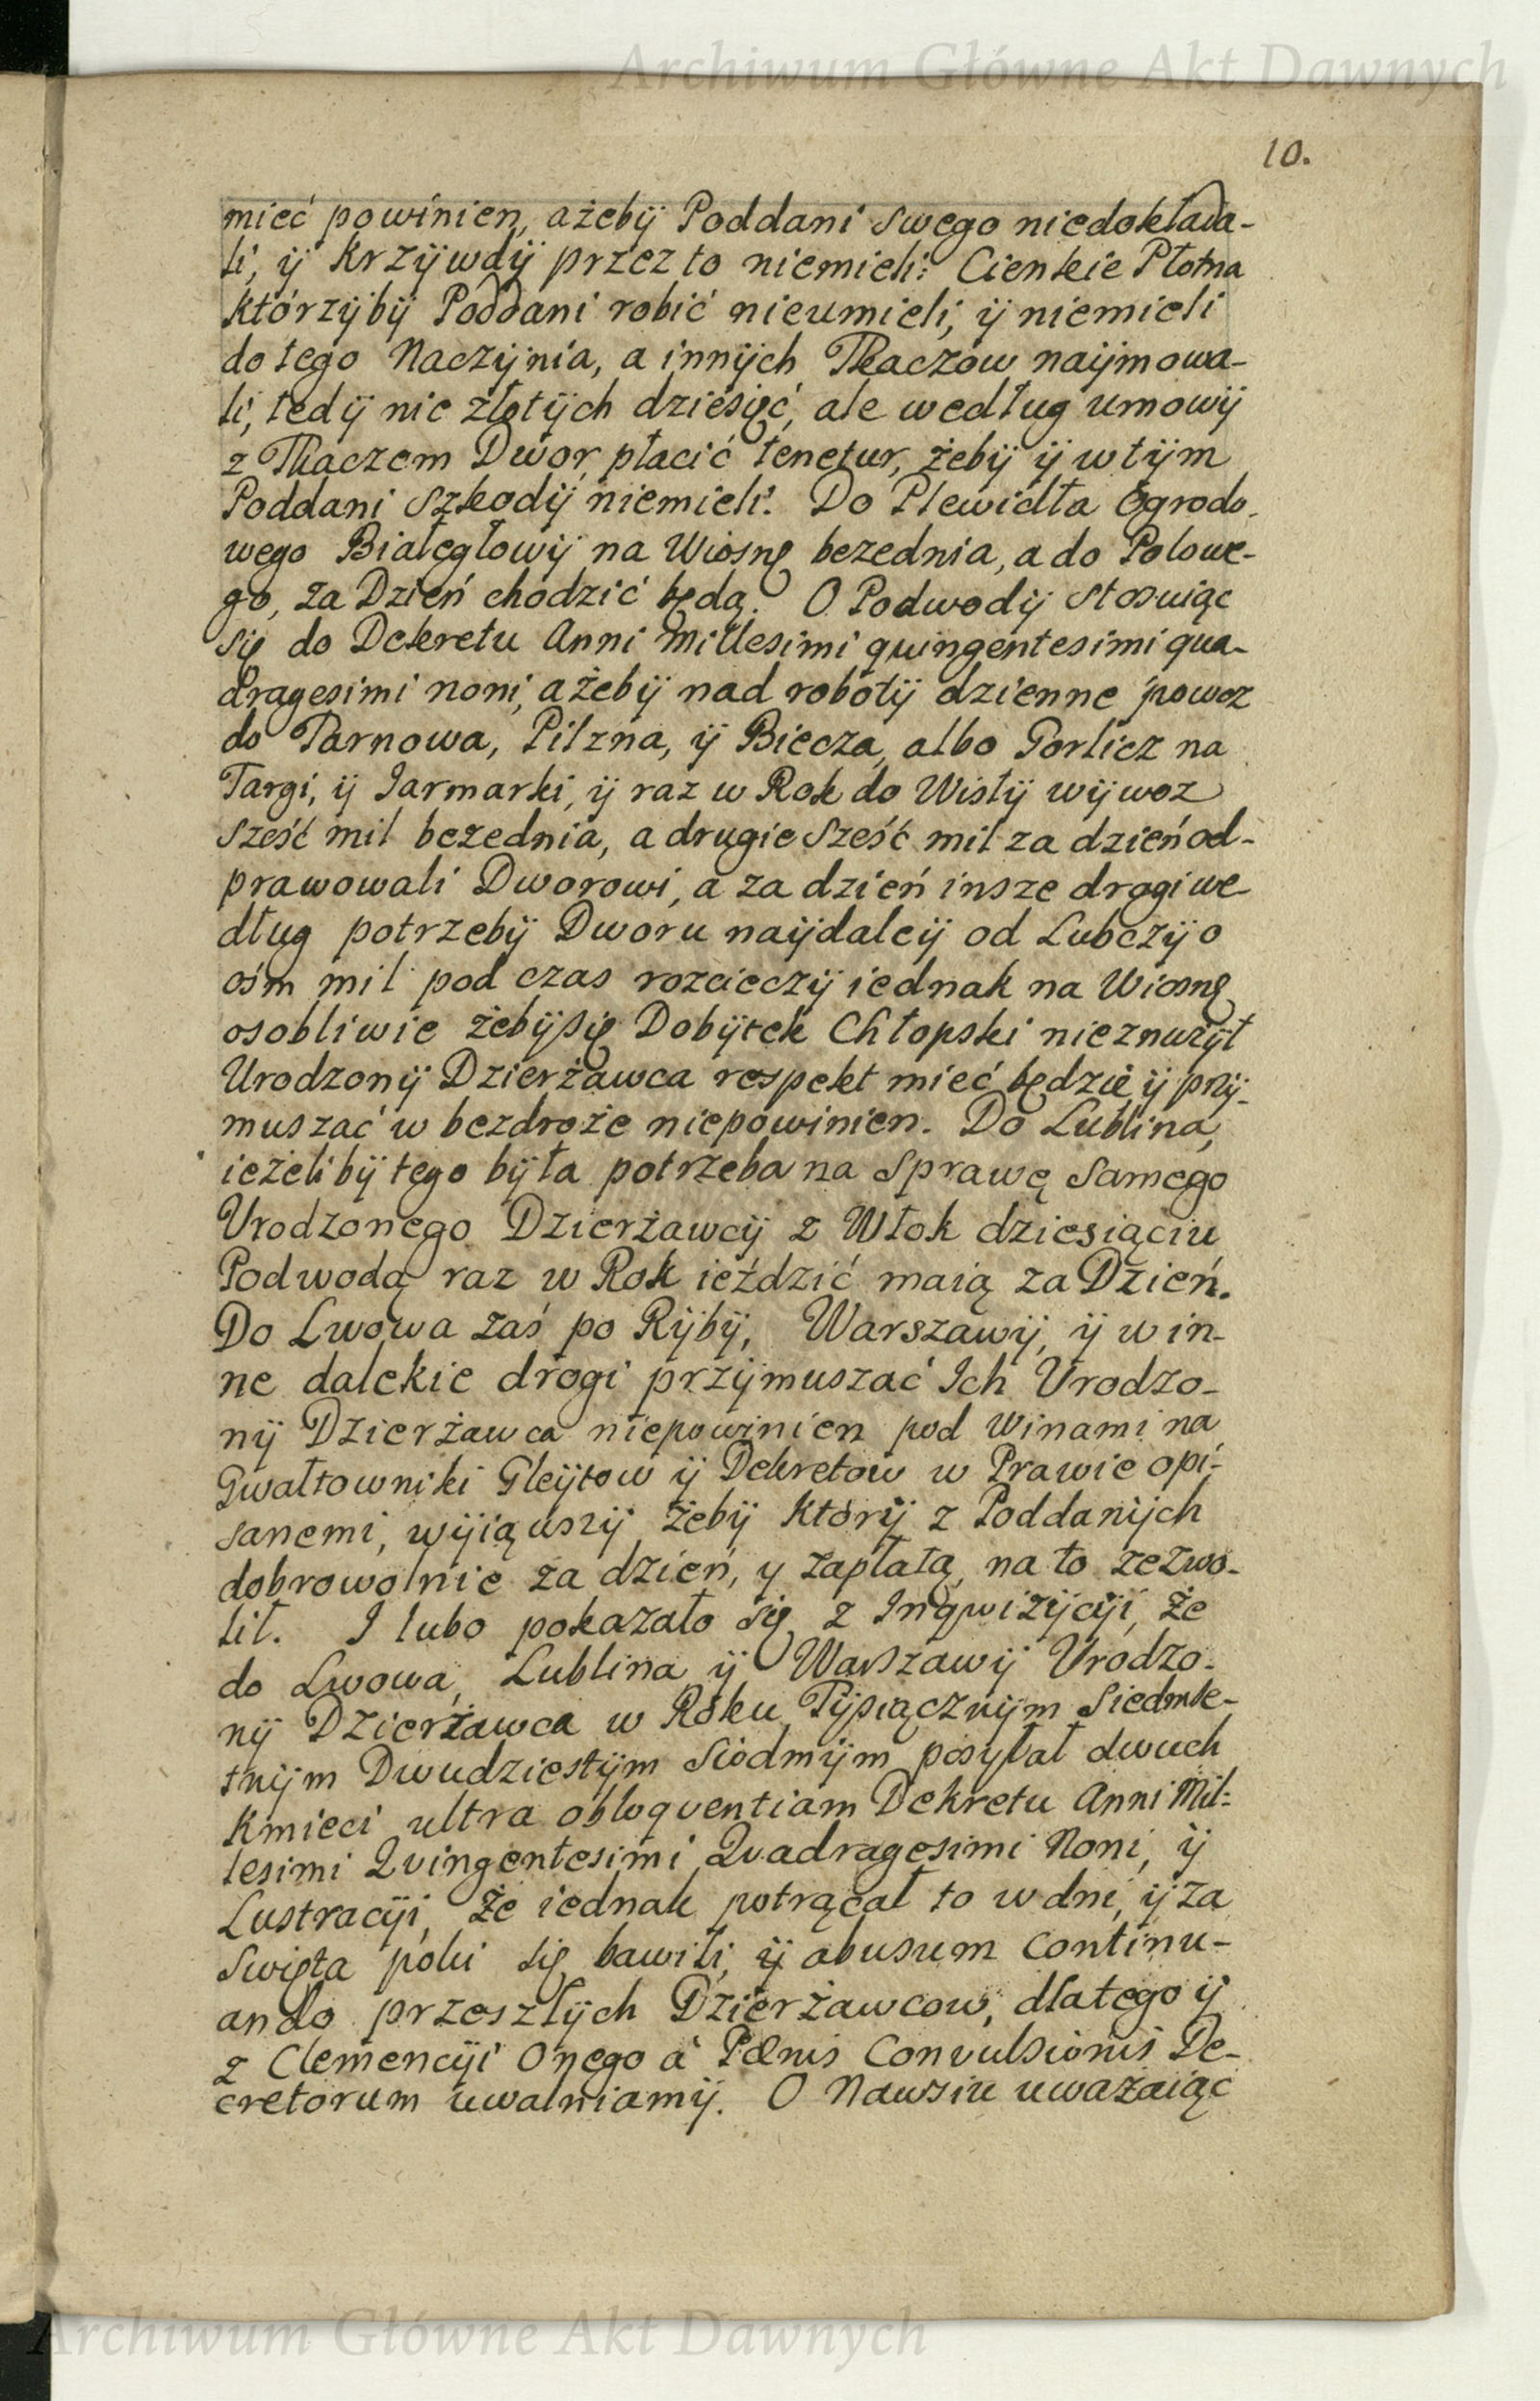 Archiwum Główne Akt Dawnych
10.
mieć powinien, ażebÿ Poddani swego niedokłada-
li, ÿ Krzÿwdÿ przez to niemieli: Cienkie Płotna
którzÿbÿ Poddani robić nieumieli, ÿ niemieli
do tego Naczÿnia, a innÿch Tkaczow naÿmowa-
li, tedÿ nie złotÿch dziesięć, ale według umowÿ
z Tkaczem Dwor płacić tenetur, żebÿ ÿ w tÿm
Poddani Szkodÿ niemieli. Do Plewidła Ogrodo-
wego Białegłowÿ na Wiosnę bezednia, a do Polowe-
go, za Dzień chodzić będą. O Podwodÿ stosuiąc
się do Dekretu Anni Millesimi quingentesimi qua-
dragesimi noni, ażebÿ nad robotÿ dzienne powoz
do Tarnowa, Pilzna, ÿ Biecza, albo Gorlicz na
Targi, ÿ Iarmarki, ÿ raz w Rok do Wisłÿ wÿwoz
sześć mil bezednia, a drugie sześć mil za dzień od-
prawowali Dworowi, a za dzień insze drogi we-
dług potrzebÿ Dworu naÿdaleÿ od Lubczÿ o
ośm mil pod czas rozcieczÿ iednak na Wiosnę
osobliwie żebÿ się Dobÿtek Chłopski nieznużÿł
Urodzonÿ Dzierżawca respekt mieć będzie ÿ przÿ-
muszać w bezdroże niepowinien. Do Lublina,
ieżelibÿ tego bÿła potrzeba na Sprawę samego
Urodzonego Dzierżawcÿ z Włok dziesiąciu
Podwodą raz w Rok ieździć maią za Dzień.
Do Lwowa zaś po Rÿbÿ, Warszawÿ, ÿ w in-
ne dalekie drogi przÿmuszać Ich Urodzo-
nÿ Dzierżawca niepowinien pod winami na
Gwałtowniki Gleÿtow ÿ Dekretow w Prawie opi-
sanemi, wÿiąwszÿ żebÿ którÿ z Poddanÿch
dobrowolnie za dzień, y zapłatą, na to zezwo-
lił. I lubo pokazało się z Inqwizÿcÿi, że
do Lwowa, Lublina ÿ Warszawÿ Urodzo-
nÿ Dzierżawca w Roku Tÿsiącznÿm Siedmse-
tnÿm Dwudziestÿm Siódmÿm posyłał dwuch
Kmieci ultra obloquentiam Dekretu Anni Mil-
lesimi Quingentesimi Quadragesimi Noni, ÿ
Lustracÿi, że iednak potrącał to w dni, ÿ za
Swięta poki się bawili, ÿ abusum continu-
ando przeszłÿch Dzierżawcow, dlatego ÿ
z Clemencÿi Onego à Pænis Convulsionis De-
cretorum uwalniamÿ. O Nawsiu uważaiąc
Archiwum Główne Akt Dawnych